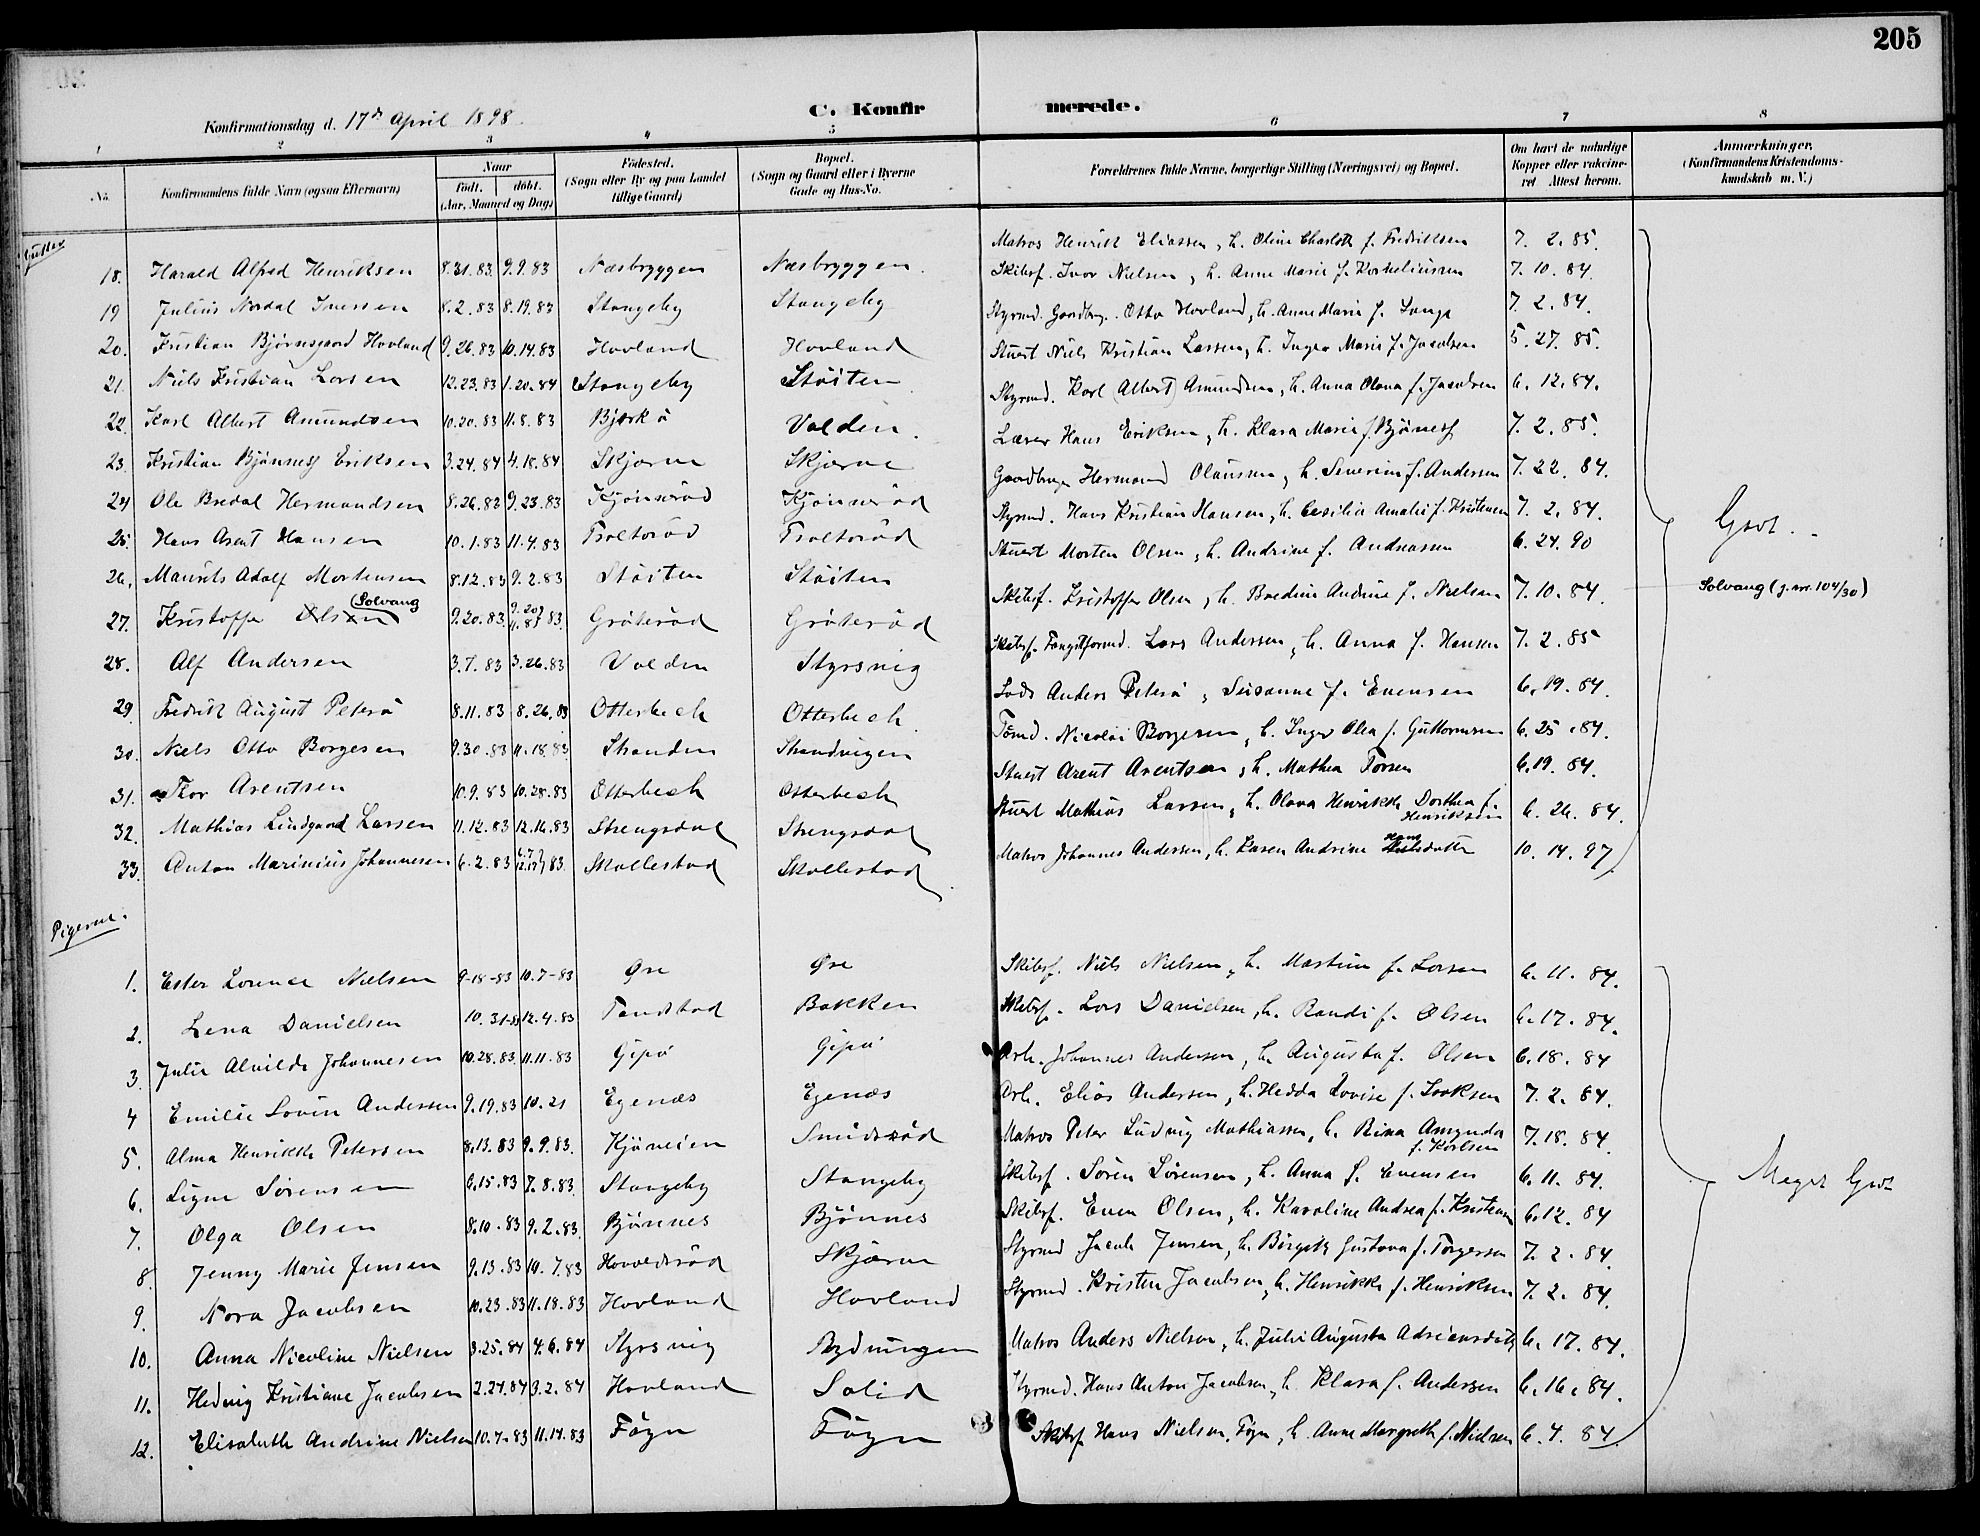 205
C. Konfirmerede.
Konfirmationsdag d. 17de April 1898.
1 2 3 4 5 6 7 8
No. Konfirmandens fulde Navn (ogsaa Efternavn) Naar født. døbt. (Aar, Maaned og Dag) Fødested. (Sogn eller By og paa Landet tillige Gaard) Bopæl. (Sogn og Gaard eller i Byerne Gade og Hus-No. Forældrenes fulde Navne, borgerlige Stilling (Næringsvei) og Bopæl. Om havt de naturlige Kopper eller vakcineret Attest herom. Anmærkninger. (Konfirmandens Kristendomskundskab m. V.)
Gutter
18. Harald Alfred Henriksen 8.31.83 9.9.83 Næsbryggen Næsbryggen. Matros Henrik Eliassen, h. Oline Charlotte f. Fredriksen 7. 2. 85.
19 Julius Nordal Iversen 8.2.83 8.19.83 Stangeby Stangeby Skibsf. Ivar Nielsen, h. Anne Marie f. Korneliussen 7. 10. 84.
20. Kristian Bjørnegaard Hovland 9.26.83 10.14.83 Hovland Hovland Styrmd. Gaardbrug. Otto Hovland, h. Anne Marie f. Lange 7. 2. 84.
21. Niels Kristian Larsen 12.23.83 1.20.84 Stangeby Støiten Stuert Niels Kristian Larsen, h. Inger Marie f. Jacobsen 5. 27. 85.
22. Karl Albert Amundsen 10.20.83 11.8.83 Bjerkø Valden. Styrmd. Karl (Albert) Amundsen, h. Anna Olava f. Jacobsen 6. 12. 84.
23. Kristian Bjønnes Eriksen 3.24.84 4.18.84 Skjærve Skjærve Lærer Hans Eriksen, h. Klara Marie f. Bjønnes 7. 2. 85.
24 Ole Bredal Hermandsen 8.26.83 9.23.83 Kjønnerød Kjønnerød Gaardbruger Hermand Olaussen, h. Severine f. Andersen 7. 22. 84.
25. Hans Arent Hansen 10.1.83 11.4.83 Troltorød Troltorød Styrmd. Hans Kristian Hansen, h. Cecilie Amalie f. Kristensen 7. 2. 84.
26. Maurits Adolf Mortensen 8.12.83 9.2.83 Støiten Støiten Stuert Morten Olsen, h. Andrine f. Andreassen 6. 24. 90
27. Kristoffer Olsen (Solvang 9.20.83 Grøterød Grøterød Skibsf. Kristoffer Olsen, h. Bredine Andrine f. Nielsen 7. 10. 84. Solvang (j. nr. 104/30)
28. Alf Andersen 3.7.83 3.26.83 Valden Styrsvig Skibsf. Fangstformd. Lars Andersen, h. Anna f. Hansen 7. 2. 85
29. Fredrik August Peterø 8.11.83 8.26.83 Otterbech Otterbech Lods Anders Peterø, Susanne f. Evensen 6. 19. 84.
30. Niels Otto Borgesen 9.30.83 11.18.83 Stranden Strandvigen Tømd. Nicolai Borgesen, h. Inger Olea f. Guttormsen 6. 25. 84.
31. Thor Arentsen 10.9.83 10.28.83 Otterbech Otterbech Stuert Arent Arentsen, h. Mathea Torsen 6. 19. 84.
32. Mathias Lindgaard Larsen 11.12.83 12.16.83 Strengsdal Strengsdal Stuert Mathias Larsen, h. Olava Henrikke Dorthea f. Henriksen 6. 26. 84.
33. Anton Marinius Johannesen 6.2.83 Skallestad Skallestad Matros Johannes Andersen, h. Karen Andrine Hansdatter 10. 14. 97
Godt.
Pigerne.
1. Ester Lorence Nielsen 9-18-83 10.7-83 Øre Øre Skibsf. Niels Nielsen, h. Martine f. Larsen 6. 11. 84.
2. Lena Danielsen 10.31.83 12.4.83 Tandstad Bakken Skibsf. Lars Danielsen, h. Randi f. Olsen 6. 17. 84.
3. Julie Alvilde Johannesen 10.28.83 11.11.83 Gipø Gipø Arb. Johannes Andersen, h. Augusta f. Olsen 6. 18. 84
4 Emilie Lovise Andersen 9.19.83 10.21 Egenæs Egenæs Arb. Elias Andersen, h. Hedda Lovise f. Isaksen 7. 2. 84.
5. Alma Henrikke Petersen 8.13.83 9.9.83. Kjøneien Smidsrød Matros Peter Ludvig Mathiassen, h. Rina Amanda f. Karlsen 7. 18. 84.
6. Signe Sørensen 6.15.83 7.8.83 Stangeby Stangeby Skibsf. Søren Sørensen, h. Anna f. Evensen 6. 11. 84.
7. Olga Olsen 8.10.83 9.2.83. Bjønnes Bjønnes Skibsf. Even Olsen, h. Karoline Andrea f. Kristensen 6. 12. 84
8. Jenny Marie Jensen 9.13.83 10.7.83 Hovedsrød Skjærve Styrmd Jacob Jensen, h. Birgitte Gustava f. Torgersen 7. 2. 84.
9. Nora Jacobsen 10.23.83 11.18.83 Hovland Hovland Styrmd. Kristen Jacobsen, h. Henrikke f. Henriksen 7. 2. 84.
10. Anna Nicoline Nielsen 3.25.84 4.6.84 Styrsvig Rydningen Matros Anders Nielsen, h. Julie Augusta Adriansdatter 6. 17. 84.
11. Hedvig Kristiane Jacobsen 2.24.84 3.2.84 Hovland Solid Styrmd. Hans Anton Jacobsen, h. Klara f. Andersen 6. 16. 84.
12. Elisabeth Andrine Nielsen 10.7.83 11.14.83 Føgn Føgn Skibsf Hans Nielsen, Føgn, h. Anne Margrethe f. Nielsen 6. 7. 84.
Meget Godt